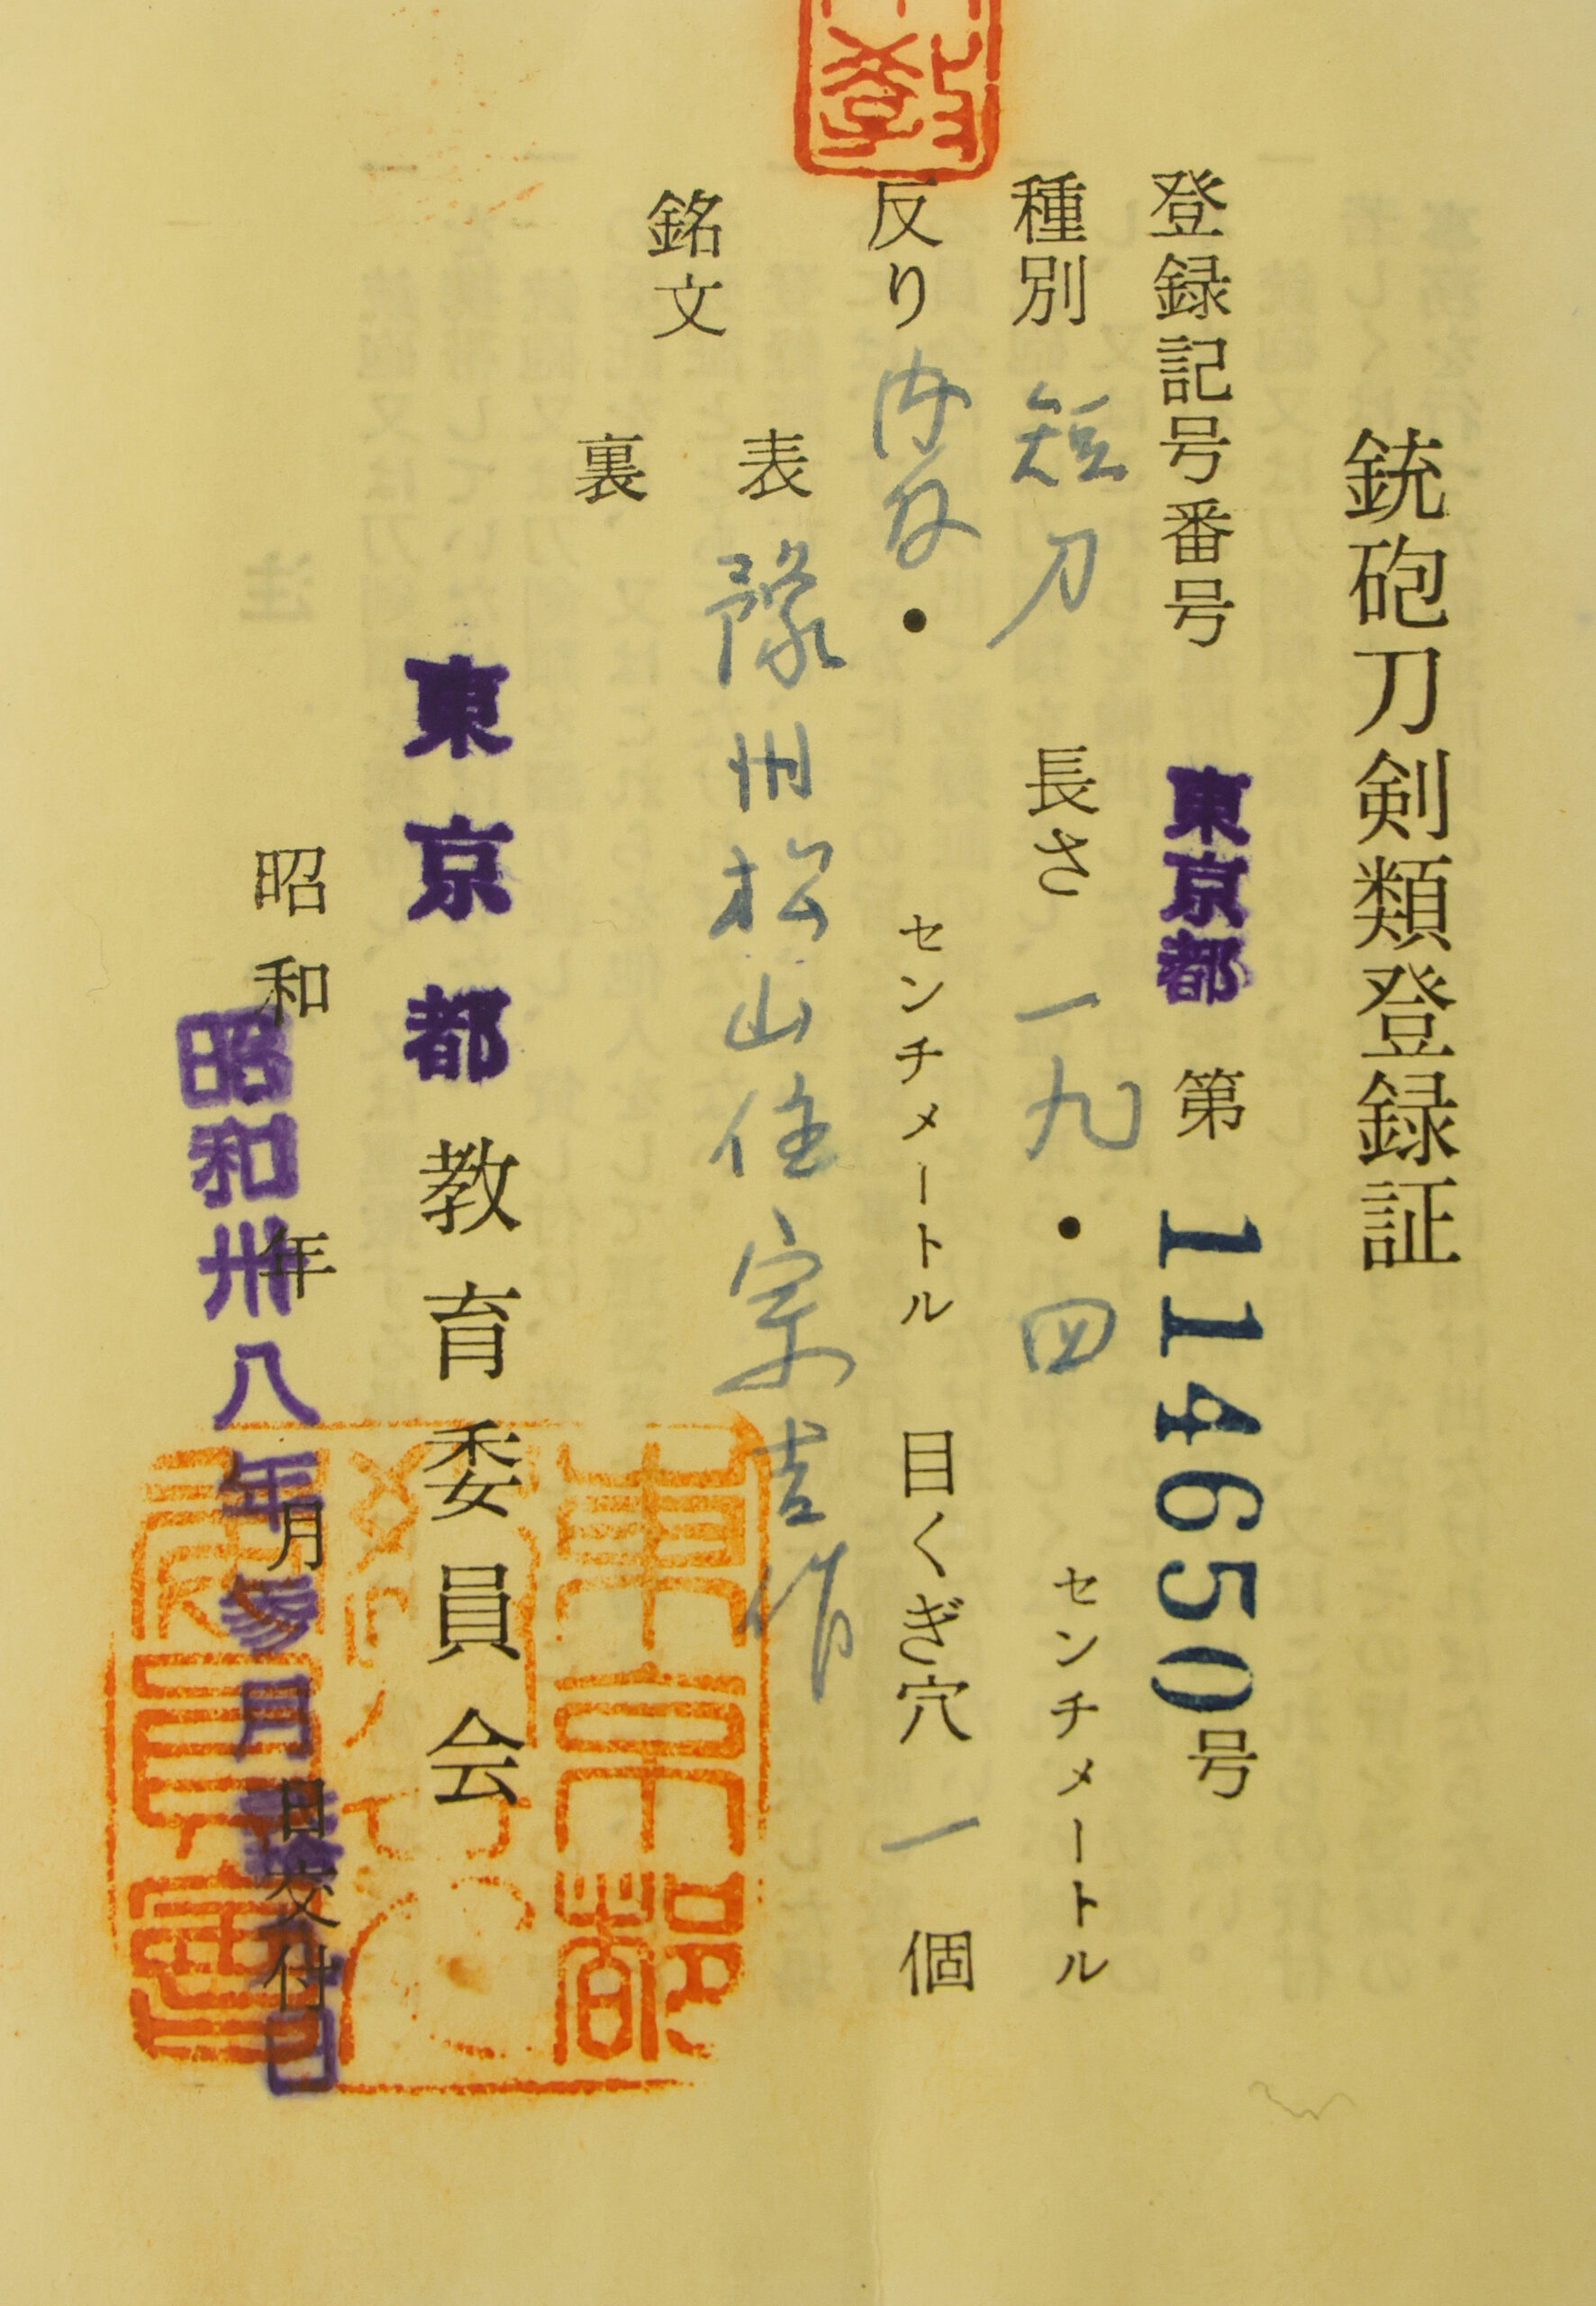 銃砲刀剣類登録証
登録記号番号 東京都 第 114650号
種別 短刀 長さ 一九・四 センチメートル
反り 内反・ センチメートル 目くぎ穴 一 個
銘文
表 豫州松山住宗吉作
裏
東京都教育委員会
昭和 年 月 日交付
昭和卅八年参月 日
東京都
委員会